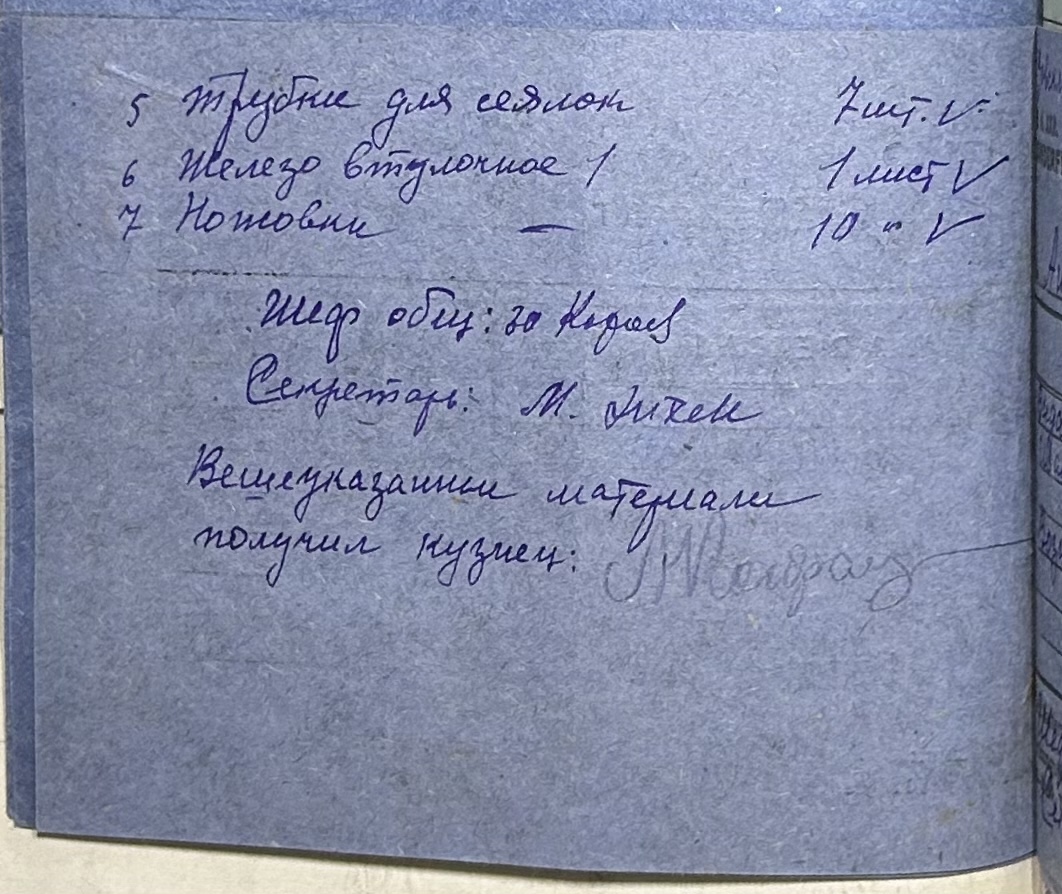 5 Трубки для сеялок 7 шт. V
6 Железо втулочное 1 1 лист V
7 Ножовки — 10 " V
Шеф общ: за
Секретарь: М.
Вешеуказанные материали
получил кузнец: